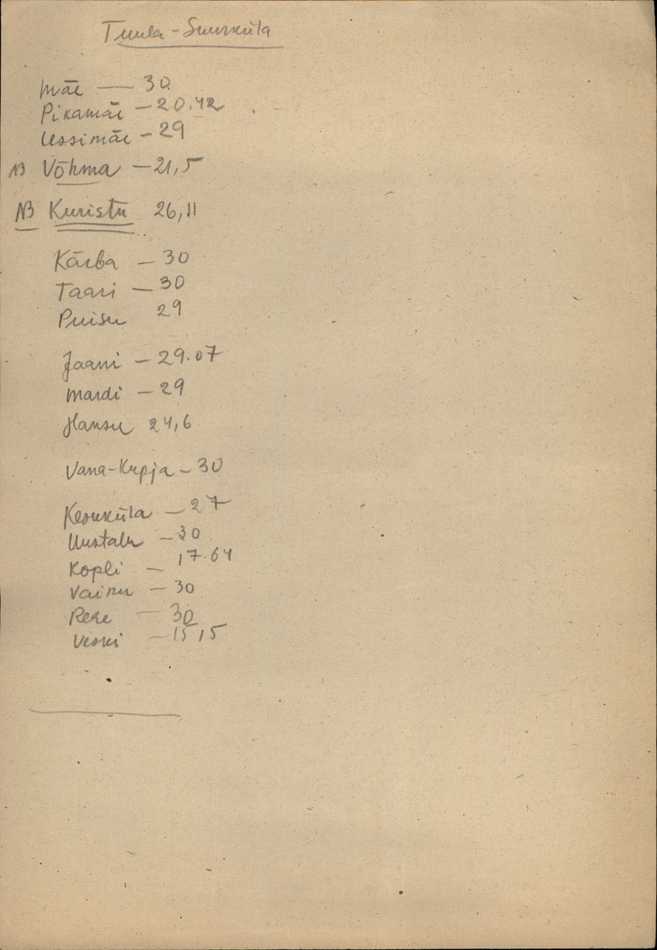 Tuula-Suurküla
Mäe — 30
Pikamäe — 20.42
Ussimäe — 29
NB Võhma — 21,5
NB Kuristu 26,11
Kärba — 30
Taari — 30
Puisu 29
Jaani — 29.07
Mardi — 29
Hansu 24,6
Vana-Kupja — 30
Keskküla — 27
Uustalu — 30
Kopli — 17.64
Vainu — 30
Pere — 30
Veski — 15,15